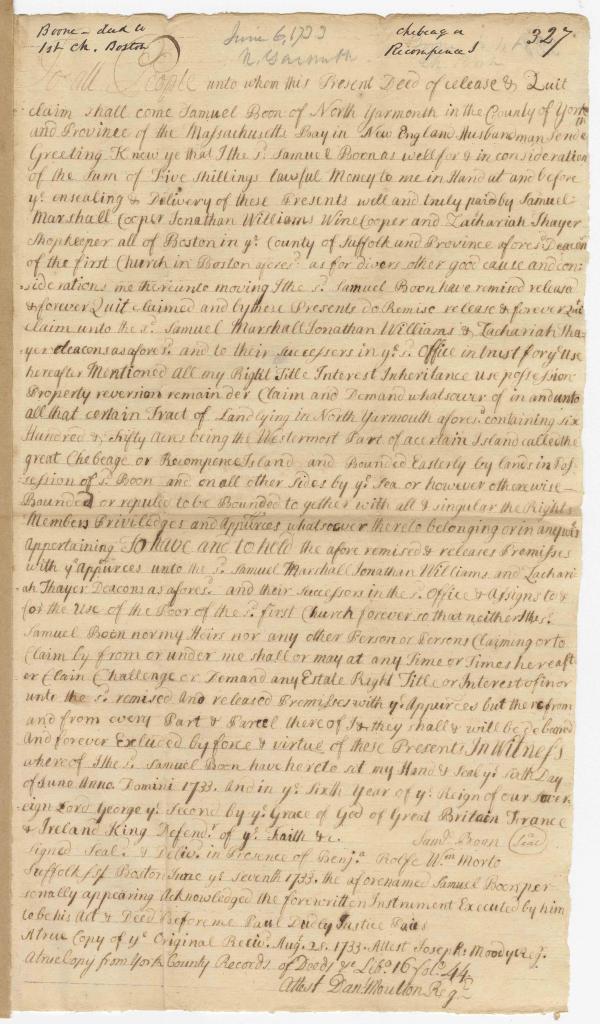 Boone - deed to
1st Ch. Boston
June 6, 1733
N. Yarmouth
Chebeag or
Recompence I
327
To all People unto whom this Present Deed of release & Quit
claim shall come Samuel Boon of North Yarmouth in the County of York
and Province of the Massachusetts Bay in New England Husbandman Sends
Greeting Know ye that I the sd. Samuel Boon as well for & in consideration
of the Sum of Five shillings lawful Money to me in Hand at and before
ye. ensealing & Delivery of these Presents well and truly paid by Samuel
Marshall Cooper Jonathan Williams Wine Cooper and Zachariah Thayer
Shopkeeper all of Boston in ye. County of Suffolk and Province afores.d Deacons
of the first Church in Boston afores.d as for divers other good cause and con
siderations me thereunto moving I the sd. Samuel Boon have remised released
& forever Quit claimed and by these Presents do Remise release & forever Quit
claim unto the sd. Samuel Marshall Jonathan Williams & Zachariah Tha
yer deacons as afores.d and to their successers in ye. sd. Office in trust for ye Use
hereafter Mentioned all my Right Title Interest Inheritance use possession
Property reversion remainder Claim and Demand whatsoever of in and unto
all that certain Tract of Land lying in North Yarmouth afores.d containing six
Hundred & fifty Acres being the Westermost Part of a certain Island called the
great Chebeage or Recompence Island and Bounded Easterly by lands in Pos
session of sd. Boon and on all other Sides by ye. Sea or however otherwise
Bounded or reputed to be Bounded to gether with all & singular the Rights
Members Priviledges and Appurces whatsoever thereto belonging or in any wise
Appertaining To have and to hold the afore remised & releases Premisses
with ye. Appurces unto the sd. Samuel Marshall Jonathan Williams and Zachari
ah Thayer Deacons as afores.d and their Successors in the sd. Office & Assigns to &
for the Use of the Poor of the sd. first Church forever so that neither I the sd.
Samuel Boon nor my Heirs nor any other Person or Persons Claiming or to
Claim by from or under me shall or may at any Time or Times hereaft
er Claim Challenge or Demand any Estate Right Title or Interest of in or
unto the sd. remised And released Premisses with ye. Appurces but therefrom
and from every Part & Parcel there of I & they shall & will be debarred
And forever Excluded by force & virtue of these Presents In Witness
whereof I the sd. Samuel Boon have hereto set my Hand & Seal ye. sixth Day
of June Anno Domini 1733. And in ye. Sixth Year of ye. Reign of our Sover
eign Lord George ye. Second by ye. Grace of God of Great Britain France
& Ireland King Defend.r of ye. Faith &c. Saml. Boon Seal
Signed Seal.d & Deliv.d in Presence of Benj.a Rolfe Wm
Suffolk ss Boston June ye Seventh 1733. the aforenamed Samuel Boon per
sonally appearing Acknowledged the forewritten Instrument Executed by him
to be his Act & Deed Before me Paul Dudley Justice Pacis
A true Copy of ye Original Reciv.d Aug. 28. 1733. Attest Joseph Moody Reg.
A true Copy from York County Records of Deeds &c Libo. 16 Folo. 44
Attest Dan. Moulton Regr.